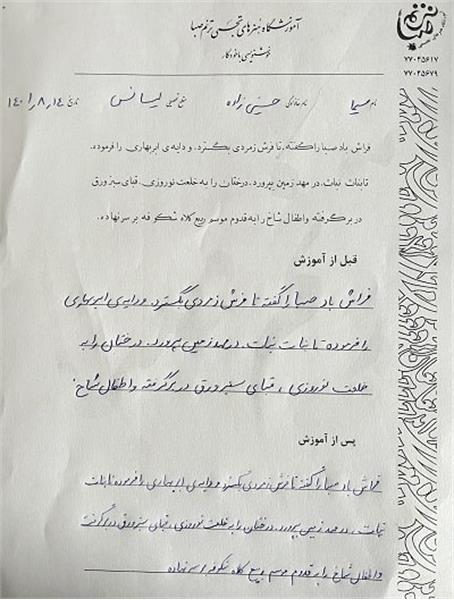 آموزشگاه هنرهای تجسمی ترنم صبا
خوشنویسی با خودکار
۷۷۰۴۵۶۱۷
۷۷۰۴۵۶۷۹
نام سیما نام خانوادگی حسینی زاده لیسانس تاریخ ۱۴۰۱٫۸٫۱۴
فراش باد صبا را گفته، تا فرش زمردی بگسترد، و دایه‌ی ابر بهاری را فرموده،
تا بنات نبات، در مهد زمین بپرورد، درختان را به خلعت نوروزی، قبای سبز ورق
در بر گرفته و اطفال شاخ را به قدوم موسم ربیع کلاه شکوفه بر سر نهاده.
قبل از آموزش
فراش باد صبا را گفته تا فرش زمردی بگسترد. و دایه‌ی ابر بهاری
را فرموده تا بنات نبات. در مهد زمین بپرورد. درختان را به
خلعت نوروزی، قبای سبز ورق در بر گرفته و اطفال شاخ
پس از آموزش
فراش باد صبا را گفته تا فرش زمردی بگسترد و دایه‌ی ابر بهاری را فرموده تا بنات
نبات، در مهد زمین بپرورد، درختان را به خلعت نوروزی، قبای سبز ورق در بر گرفته
و اطفال شاخ را به قدوم موسم ربیع کلاه شکوفه بر سر نهاده